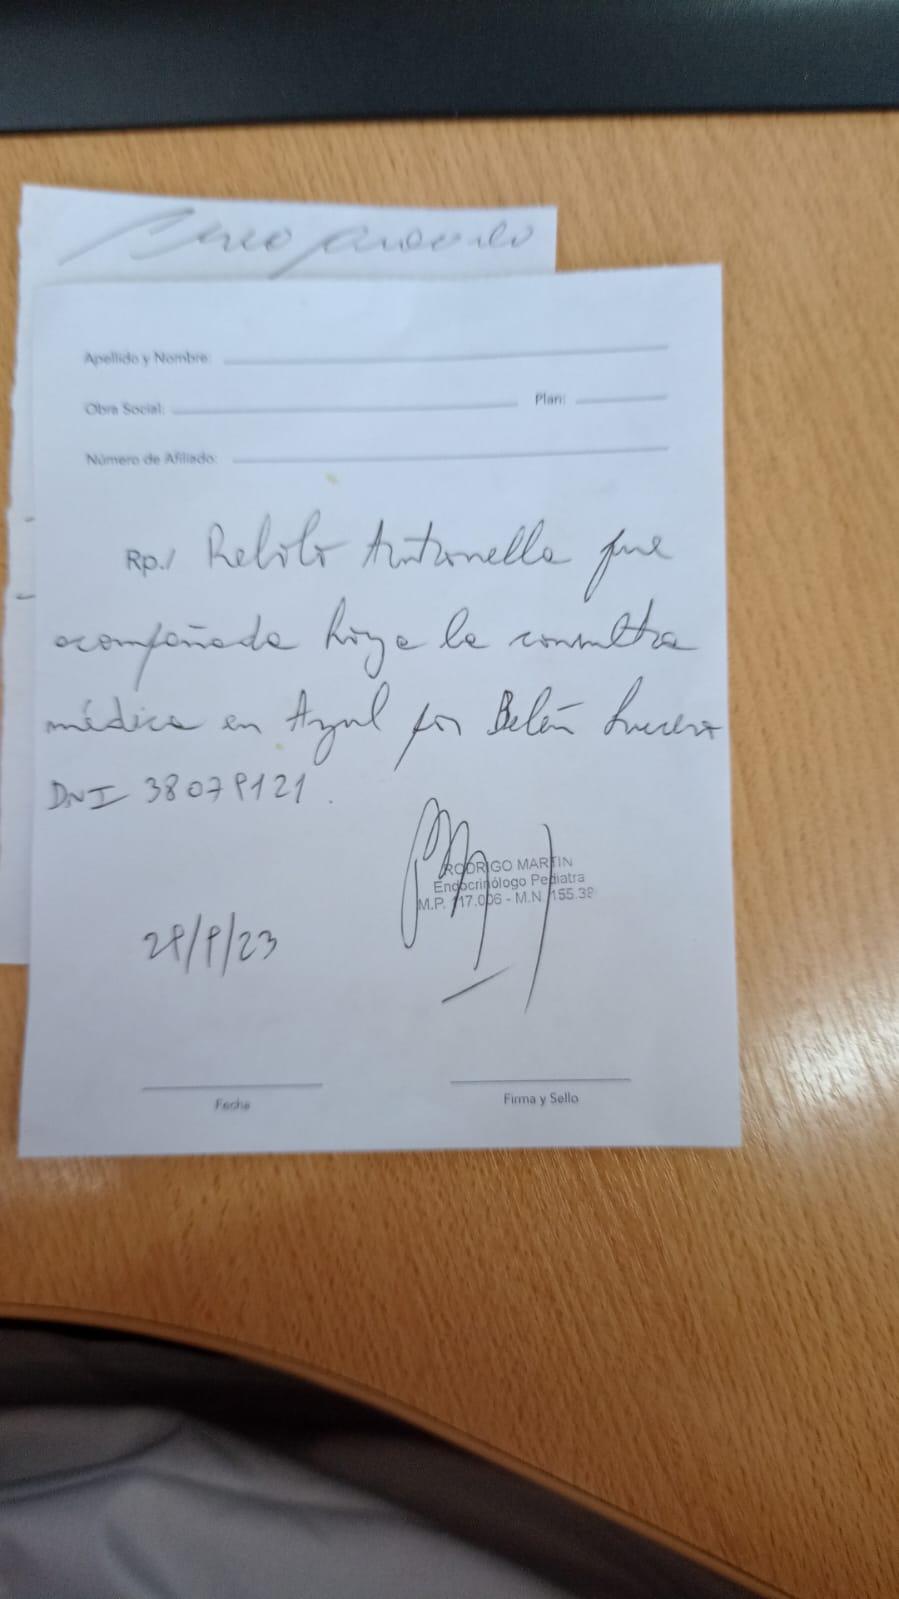 Apellido y Nombre:
Obra Social: Plan:
Número de Afiliado:
Rp./ Antonella fue
acompañada hoy a la consulta
médica en Azul por Belén Lucero
DNI 38079121.
RODRIGO MARTIN
Endocrinólogo Pediatra
M.P. 117.006 - M.N. 155.38
29/9/23
Fecha Firma y Sello